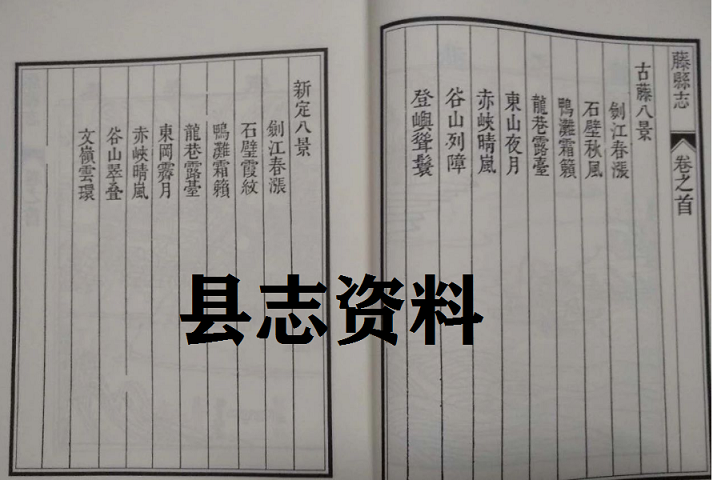 藤縣志
卷之首
古藤八景
劍江春漲
石壁秋風
鴨灘霜籟
龍巷露臺
東山夜月
赤峽晴嵐
谷山列障
登嶼聳鬟
新定八景
劍江春漲
石壁霞紋
鴨灘霜籟
龍巷露臺
東岡霽月
赤峽晴嵐
谷山翠叠
文嶺雲環
县志资料